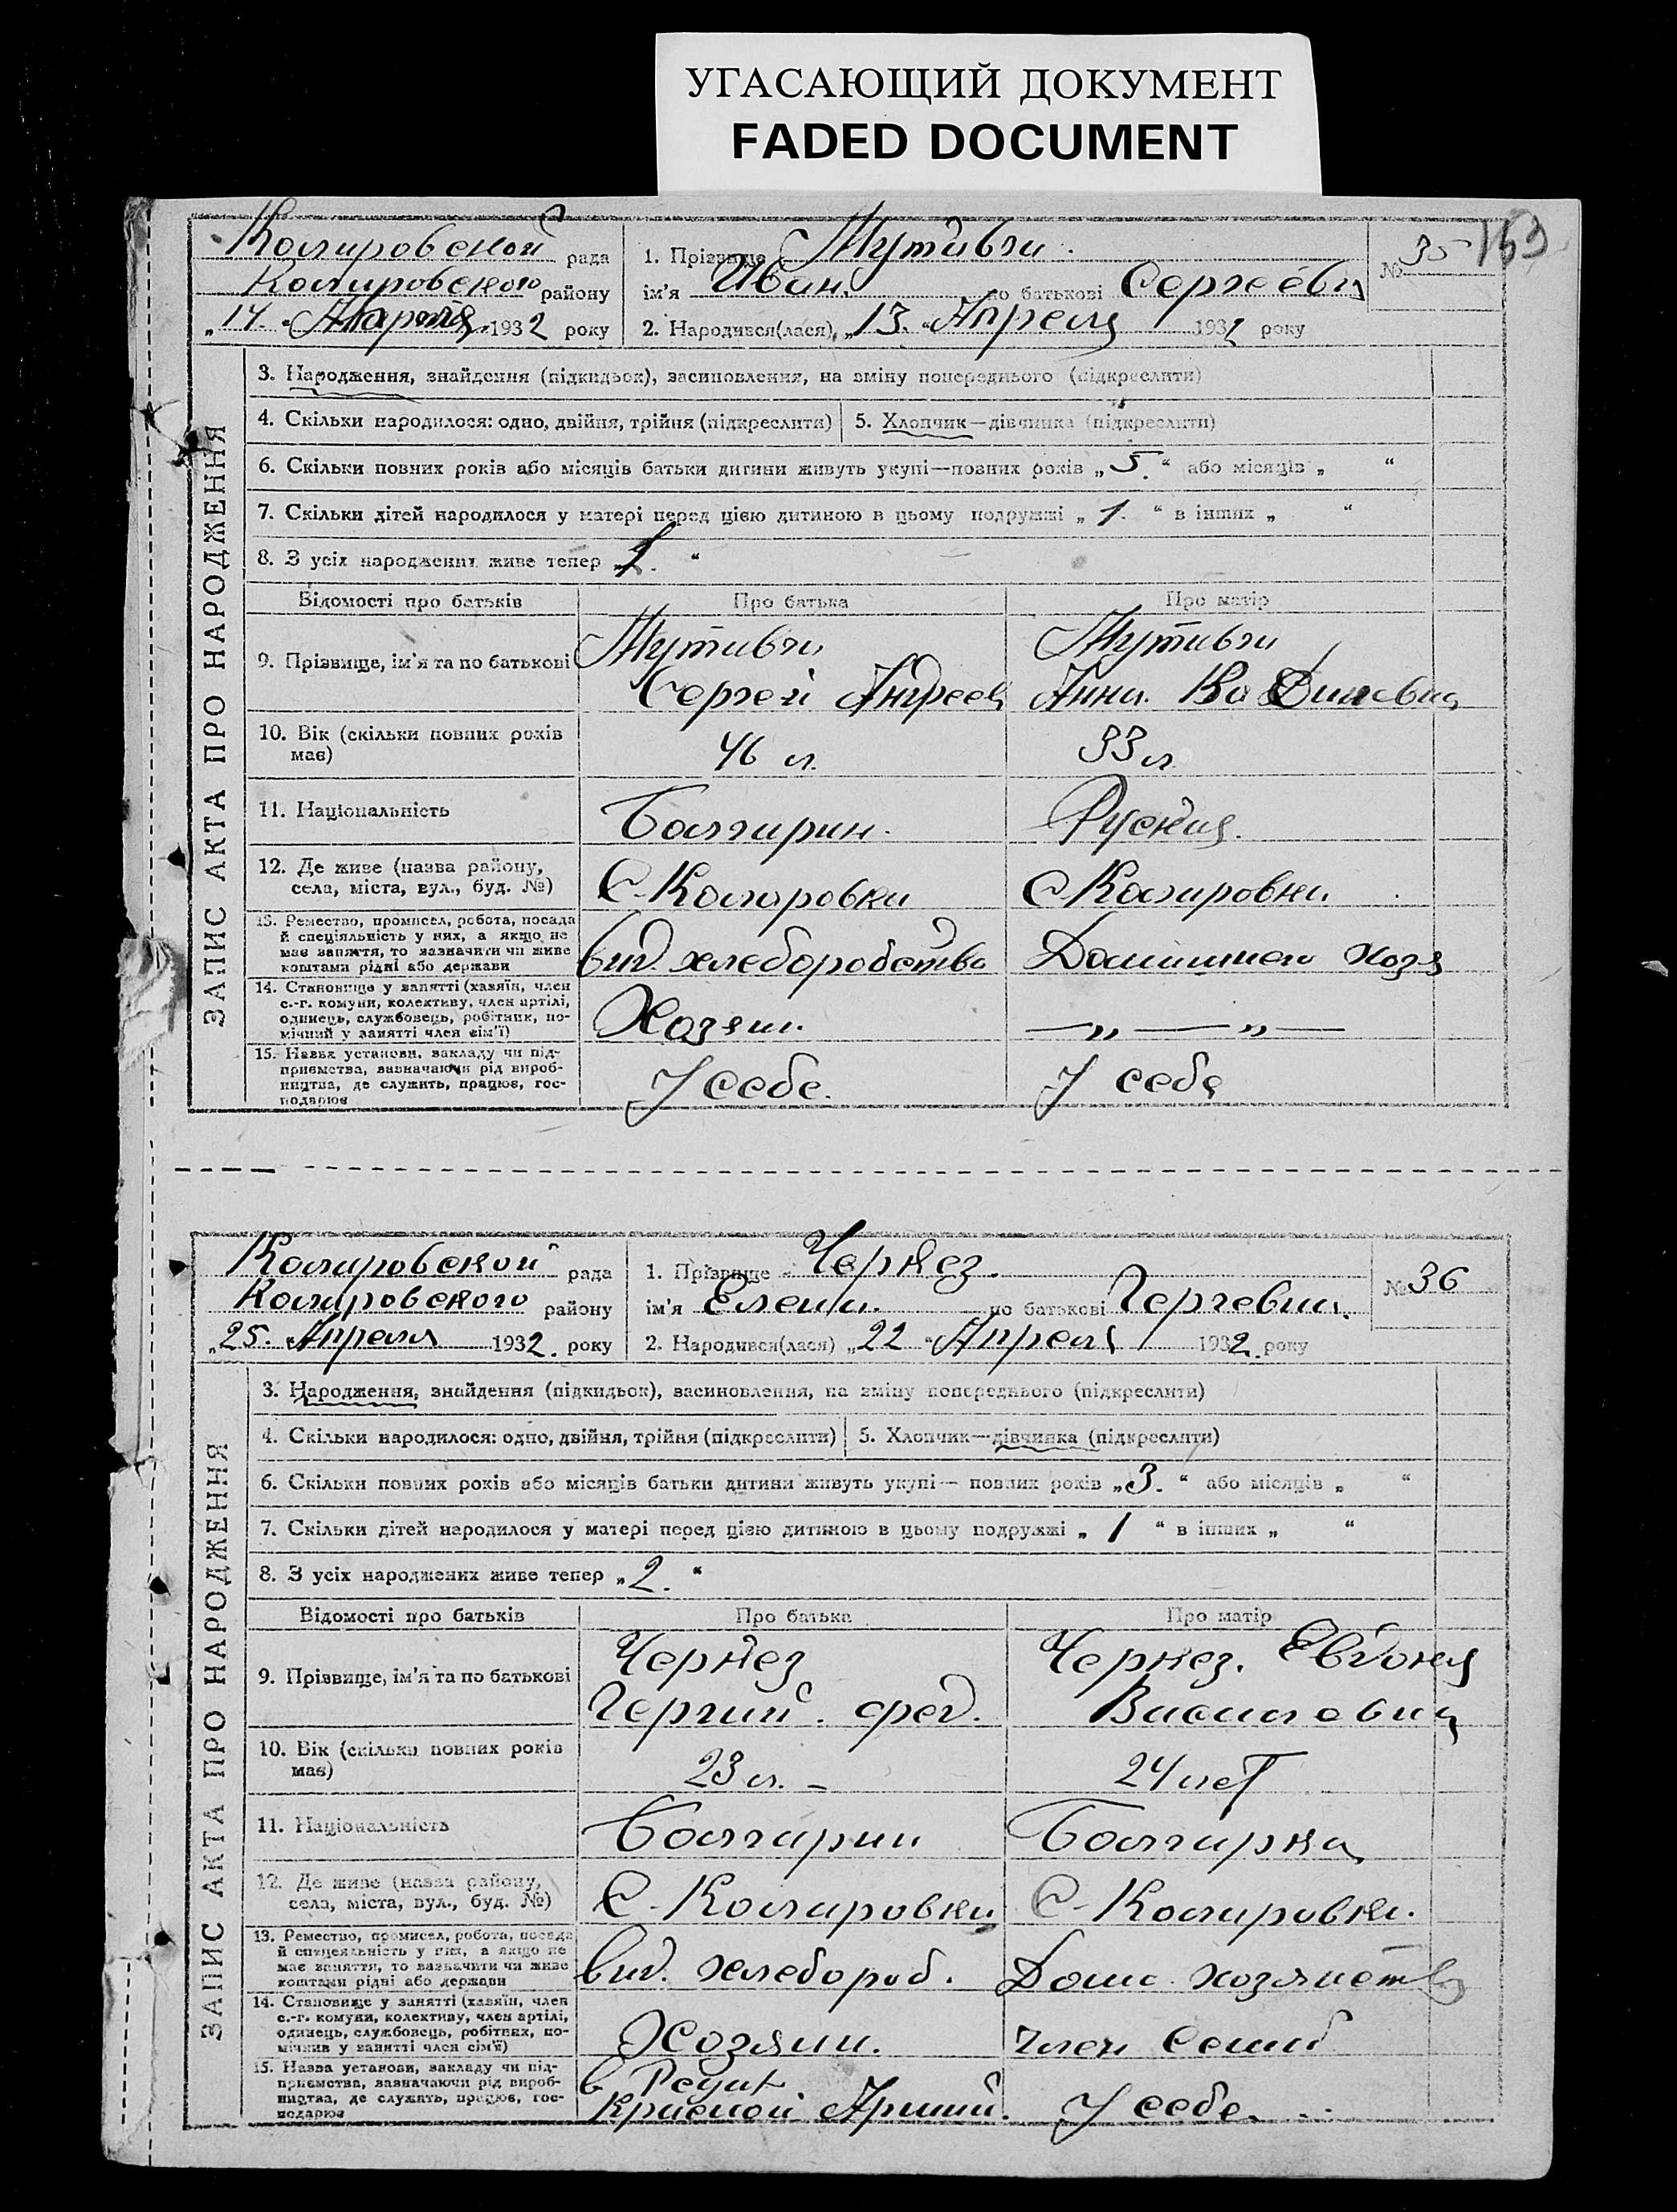 УГАСАЮЩИЙ ДОКУМЕНТ
FADED DOCUMENT
Коларовской рада
Коларовского району
„14.“ Апреля 1932 року
1. Прізвище Мутавчи
ім'я Иван. по батькові Сергеевич
2. Народився(лася) „13.“ Апреля 1932 року
№ 35
163
ЗАПИС АКТА ПРО НАРОДЖЕННЯ
3. Народження, знайдення (підкидьок), засиновлення, на зміну попереднього (підкреслити)
4. Скільки народилося: одно, двійня, трійня (підкреслити)
5. Хлопчик—дівчинка (підкреслити)
6. Скільки повних років або місяців батьки дитини живуть укупі—повних років „5.“ або місяців „ “
7. Скільки дітей народилося у матері перед цією дитиною в цьому подружжі „1.“ в інших „ “
8. З усіх народжених живе тепер „2.“
Відомості про батьків
Про батька
Про матір
9. Прізвище, ім'я та по батькові
Мутавчи
Сергей Андреев
Мутавчи
Анна.
10. Вік (скільки повних років
має)
46 л.
33 л
11. Національність
Болгарин.
Руская.
12. Де живе (назва району,
села, міста, вул., буд. №)
С-Коларовка
С-Коларовка
13. Ремество, промисел, робота, посада
й спеціяльність у них, а якщо не
має заняття, то зазначити чи живе
коштами рідні або держави
хлеборобство
Домашнего хозя
14. Становище у занятті (хазяїн, член
с.-г. комуни, колективу, член артілі,
одинець, службовець, робітник, по-
мічний у занятті член сім'ї)
Хозяин.
—„—„—
15. Назва установи, закладу чи під-
приємства, зазначаючи рід вироб-
ництва, де служить, працює, гос-
подарює
У себе.
У себя
Коларовской рада
Коларовского району
„25.“ Апреля 1932. року
1. Прізвище Чернез.
ім'я Елена. по батькові Гергевна.
2. Народився(лася) „22“ Апреля 1932. року
№ 36
ЗАПИС АКТА ПРО НАРОДЖЕННЯ
3. Народження, знайдення (підкидьок), засиновлення, на зміну попереднього (підкреслити)
4. Скільки народилося: одно, двійня, трійня (підкреслити)
5. Хлопчик—дівчинка (підкреслити)
6. Скільки повних років або місяців батьки дитини живуть укупі— повних років „3.“ або місяців „ “
7. Скільки дітей народилося у матері перед цією дитиною в цьому подружжі „1“ в інших „ “
8. З усіх народжених живе тепер „2.“
Відомості про батьків
Про батька
Про матір
9. Прізвище, ім'я та по батькові
Чернез
Гергий. фед.
Чернез. Евдокия
Василевна
10. Вік (скільки повних років
має)
23 л. –
24 лет
11. Національність
Болгарин
Болгарка
12. Де живе (назва району,
села, міста, вул., буд. №)
С-Коларовка
С-Коларовка.
13. Ремество, промисел, робота, посада
й спецеяльність у них, а якщо не
має заняття, то зазначити чи живе
коштами рідні або держави
хлебороб.
Дома. хозяйство
14. Становище у занятті (хазяїн, член
с.-г. комуни, колективу, член артілі,
одинець, службовець, робітник, по-
мічник у занятті член сім'ї)
Хозяин.
член семьи
15. Назва установи, закладу чи під-
приємства, зазначаючи рід вироб-
ництва, де служить, працює, гос-
подарює
в
Красной Армии.
У себе.